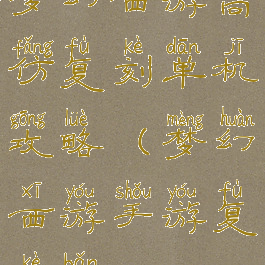 西游高
fǎng fù kè dān jī
仿复刻单机
gōng lüè mèng huàn
攻略（梦幻
xī yóu shǒu yóu fù
西游手游复
kè bǎn